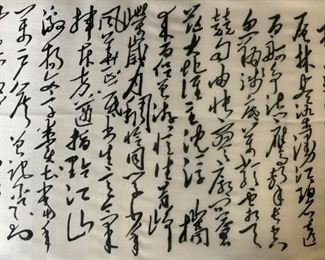 层林尽染漫江碧透
百舸争流鹰击长空
鱼翔浅底万类霜天
竞自由怅寥廓问
苍茫大地谁主沉浮携
来百侣曾游忆往昔峥
嵘岁月稠恰同学少年
风华正茂书生意气
挥斥方遒指点江山
激扬文字粪土当年
万户侯曾记否到